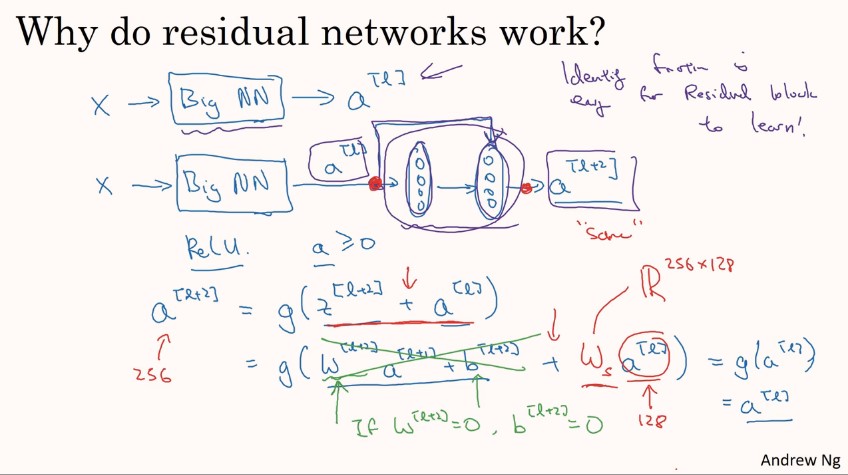 Why do residual networks work?
X → Big NN → a^[l]
Identity function is
easy for Residual block
to learn!
X → Big NN → a^[l] → → → a^[l+2]
"same"
ReLU. a ≥ 0
ℝ^256×128
a^[l+2] = g(z^[l+2] + a^[l])
= g(W^[l+2] a^[l+1] + b^[l+2] + W_s a^[l]) = g(a^[l])
256
= a^[l]
If W^[l+2]=0, b^[l+2]=0
128
Andrew Ng